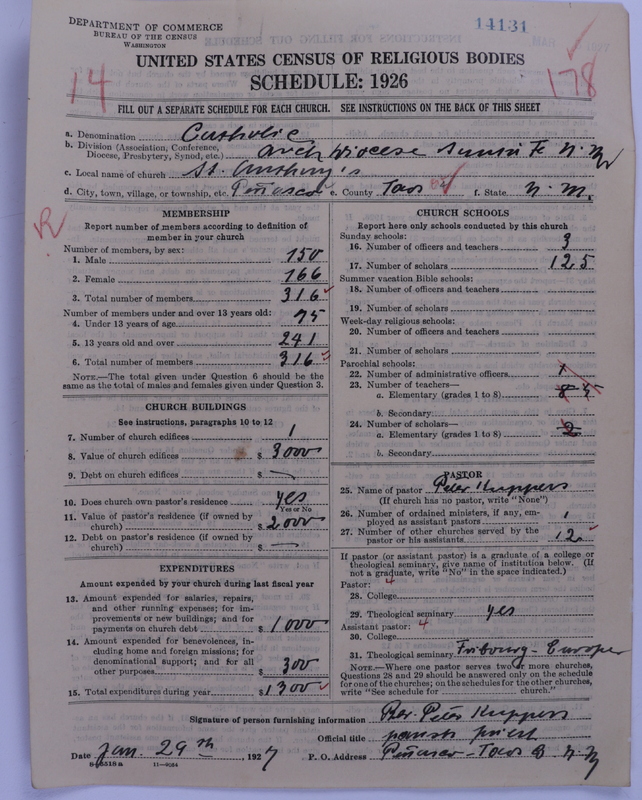 DEPARTMENT OF COMMERCE
BUREAU OF THE CENSUS
WASHINGTON
14131
UNITED STATES CENSUS OF RELIGIOUS BODIES
SCHEDULE: 1926
14
178
FILL OUT A SEPARATE SCHEDULE FOR EACH CHURCH. SEE INSTRUCTIONS ON THE BACK OF THIS SHEET
a. Denomination Catholic
b. Division (Association, Conference, Diocese, Presbytery, Synod, etc.) Arch Diocese Santa Fe N. M
c. Local name of church St. Anthony's
d. City, town, village, or township, etc. Peñasco e. County Taos f. State N. M.
R
MEMBERSHIP
Report number of members according to definition of member in your church
Number of members, by sex:
1. Male 150
2. Female 166
3. Total number of members 316
Number of members under and over 13 years old:
4. Under 13 years of age 75
5. 13 years old and over 241
6. Total number of members 316
NOTE.—The total given under Question 6 should be the same as the total of males and females given under Question 3.
CHURCH BUILDINGS
See instructions, paragraphs 10 to 12
7. Number of church edifices 1
8. Value of church edifices $ 3000
9. Debt on church edifices $ —
10. Does church own pastor's residence yes
Yes or No
11. Value of pastor's residence (if owned by church) $ 2000
12. Debt on pastor's residence (if owned by church) $ —
EXPENDITURES
Amount expended by your church during last fiscal year
13. Amount expended for salaries, repairs, and other running expenses; for improvements or new buildings; and for payments on church debt $ 1000
14. Amount expended for benevolences, including home and foreign missions; for denominational support; and for all other purposes $ 300
15. Total expenditures during year $ 1300
CHURCH SCHOOLS
Report here only schools conducted by this church
Sunday schools:
16. Number of officers and teachers 3
17. Number of scholars 125
Summer vacation Bible schools:
18. Number of officers and teachers
19. Number of scholars
Week-day religious schools:
20. Number of officers and teachers
21. Number of scholars
Parochial schools:
22. Number of administrative officers
23. Number of teachers—
a. Elementary (grades 1 to 8)
b. Secondary
24. Number of scholars—
a. Elementary (grades 1 to 8) 2
b. Secondary
PASTOR
25. Name of pastor Peter Kuppers
(If church has no pastor, write "None")
26. Number of ordained ministers, if any, employed as assistant pastors 1
27. Number of other churches served by the pastor or his assistants 12
If pastor (or assistant pastor) is a graduate of a college or theological seminary, give name of institution below. (If not a graduate, write "No" in the space indicated.)
Pastor: 4
28. College
29. Theological seminary yes
Assistant pastor: 4
30. College
31. Theological seminary Fribourg - Europe
NOTE.—Where one pastor serves two or more churches, Questions 28 and 29 should be answered only on the schedule for one of the churches; on the schedules for the other churches, write "See schedule for church."
Signature of person furnishing information Rev. Peter Kuppers
Official title parish priest
Date Jan. 29th, 1927 P. O. Address Peñasco - Taos Co N. M
11—9084